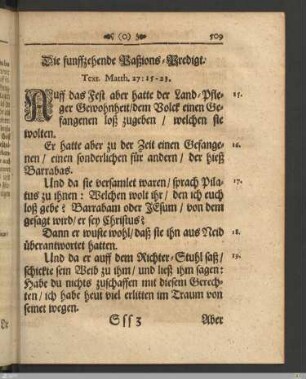 (0) 509
Die funffzehende Paßions-Predigt.
Text. Matth. 27: 15-23.
Auff das Fest aber hatte der Land-Pfle- 15.
ger Gewohnheit/dem Volck einen Ge-
fangenen loß zugeben / welchen sie
wolten.
Er hatte aber zu der Zeit einen Gefange- 16.
nen / einen sonderlichen für andern / der hieß
Barrabas.
Und da sie versamlet waren / sprach Pila- 17.
tus zu ihnen: Welchen wolt ihr / den ich euch
loß gebe? Barrabam oder JEsum / von dem
gesagt wird / er sey Christus?
Dann er wuste wohl / daß sie ihn aus Neid 18.
überantwortet hatten.
Und da er auff dem Richter-Stuhl saß / 19.
schickte sein Weib zu ihm / und ließ ihm sagen:
Habe du nichts zuschaffen mit diesem Gerech-
ten / ich habe heut viel erlitten im Traum von
seinet wegen.
Sss 3 Aber